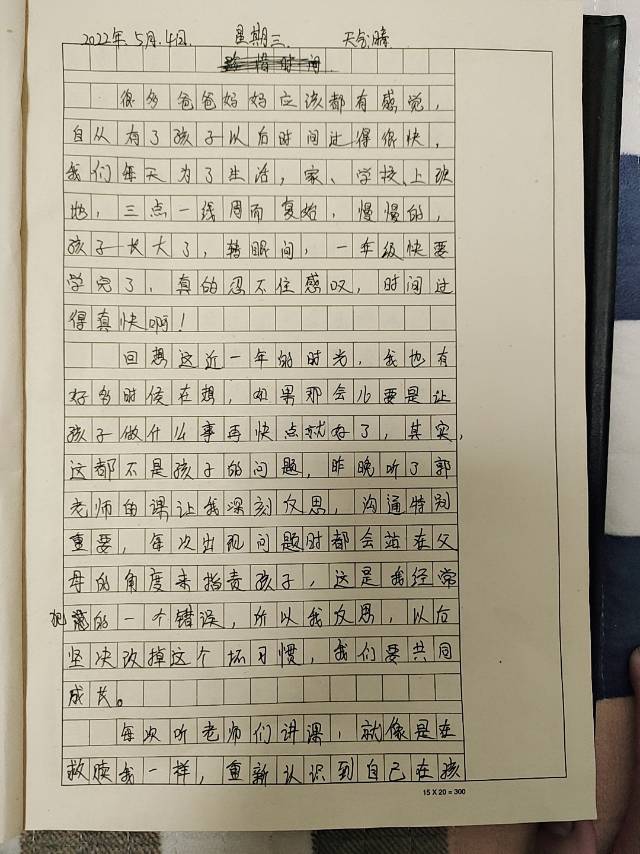 2022年5月4日 星期三 天气晴
珍惜时间
很多爸爸妈妈应该都有感觉，
自从有了孩子以后时间过得很快，
我们每天为了生活，家、学校、上班
地，三点一线周而复始，慢慢的，
孩子长大了，转眼间，一年级快要
学完了，真的忍不住感叹，时间过
得真快啊！
回想这近一年的时光，我也有
好多时候在想，如果那会儿要是让
孩子做什么事再快点就好了，其实，
这都不是孩子的问题，昨晚听了郭
老师的课让我深刻反思，沟通特别
重要，每次出现问题时都会站在父
母的角度来指责孩子，这是我经常
犯的一个错误，所以我反思，以后
坚决改掉这个坏习惯，我们要共同
成长。
每次听老师们讲课，就像是在
救赎我一样，重新认识到自己在孩
15 X 20 = 300